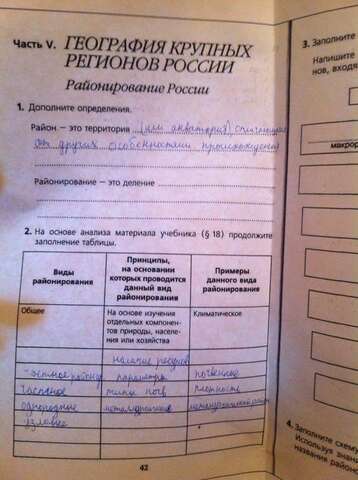 Часть V. ГЕОГРАФИЯ КРУПНЫХ
РЕГИОНОВ РОССИИ
Районирование России
1. Дополните определения.
Район — это территория (или акватория)
от других особенностями
Районирование — это деление
2. На основе анализа материала учебника (§ 18) продолжите
заполнение таблицы.
Виды районирования
Принципы, на основании которых проводится данный вид районирования
Примеры данного вида районирования
Общее
На основе изучения отдельных компонентов природы, населения или хозяйства
Климатическое
наличие ресурсов
параметры
почвенное
частное
типы почв
однородные
узловое
42
3. Заполните
Напишите
нов, входя
макрор
4. Заполните схему
Используя знани
названия районо